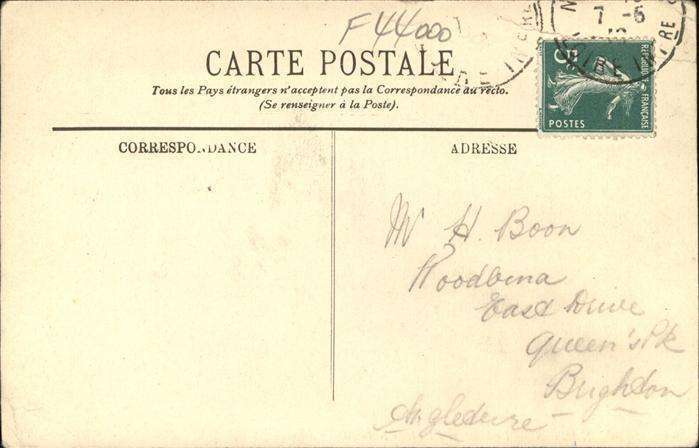 F44000
7 -5
CARTE POSTALE
Tous les Pays étrangers n'acceptent pas la Correspondance au recto.
(Se renseigner à la Poste).
CORRESPONDANCE
ADRESSE
5
POSTES
FRANÇAISE
Mr H. Boon
Woodbina
East Drive
Queen's Pk
Brighton
Angleterre